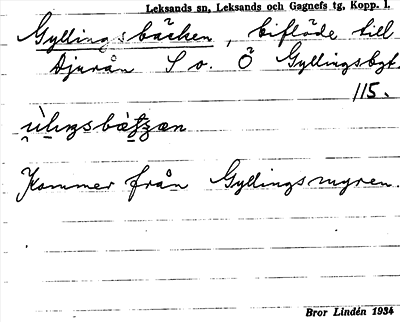 Leksands sn, Leksands och Gagnefs tg, Kopp. l.
Gyllingsbäcken, biflöde till
Djurån S o. Ö Gyllingsbgt.
115.
Kommer från Gyllingsmyren.
Bror Lindén 1934